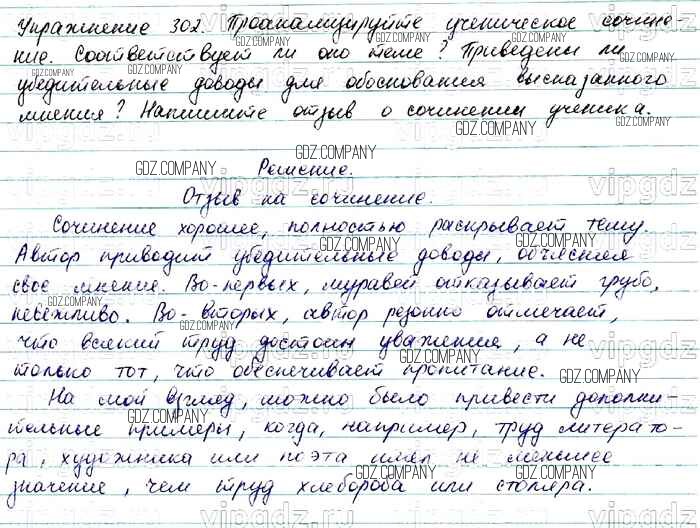 Упражнение 302. Проанализируйте ученическое сочине-
ние. Соответствует ли оно теме? Приведены ли
убедительные доводы для обоснования высказанного
мнения? Напишите отзыв о сочинении ученика.
Решение.
Отзыв на сочинение.
Сочинение хорошее, полностью раскрывает тему.
Автор приводит убедительные доводы, объясняя
свое мнение. Во-первых, муравей отказывает грубо,
невежливо. Во-вторых, автор резонно отмечает,
что всякий труд достоин уважения, а не
только тот, что обеспечивает пропитание.
На мой взгляд, можно было привести дополни-
тельные примеры, когда, например, труд литерато-
ра, художника или поэта имел не меньшее
значение, чем труд хлебороба или столяра.